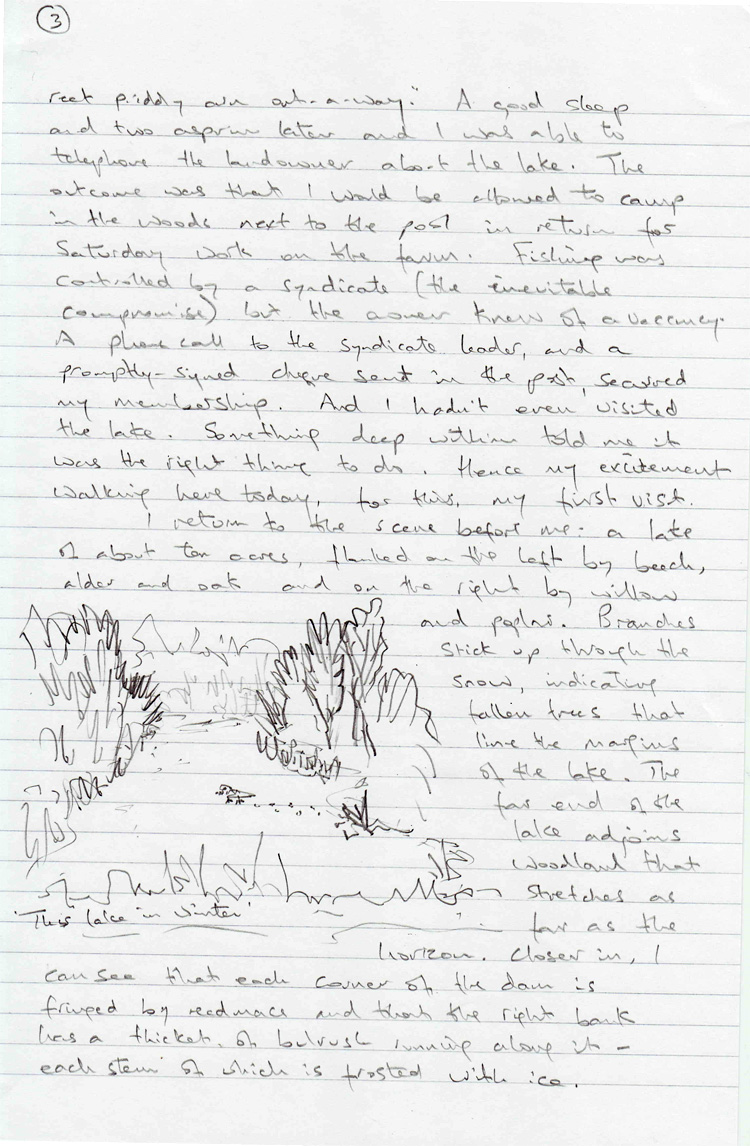 3
reet priddy own out-a-way." A good sleep
and two asprin later and I was able to
telephone the landowner about the lake. The
outcome was that I would be allowed to camp
in the woods next to the pool in return for
Saturday work on the farm. Fishing was
controlled by a syndicate (the inevitable
compromise) but the owner knew of a vacancy.
A phone call to the syndicate leader, and a
promptly-signed cheque sent in the post, secured
my membership. And I hadn't even visited
the lake. Something deep within told me it
was the right thing to do. Hence my excitement
walking here today, for this, my first visit.
I return to the scene before me: a lake
of about ten acres, flanked on the left by beech,
alder and oak and on the right by willow
and poplar. Branches
stick up through the
snow, indicating
fallen trees that
line the margins
of the lake. The
far end of the
lake adjoins
woodland that
stretches as
far as the
horizon. Closer in, I
'This lake in winter'
can see that each corner of the dam is
fringed by reedmace and that the right bank
has a thicket of bulrush running along it -
each stem of which is frosted with ice.